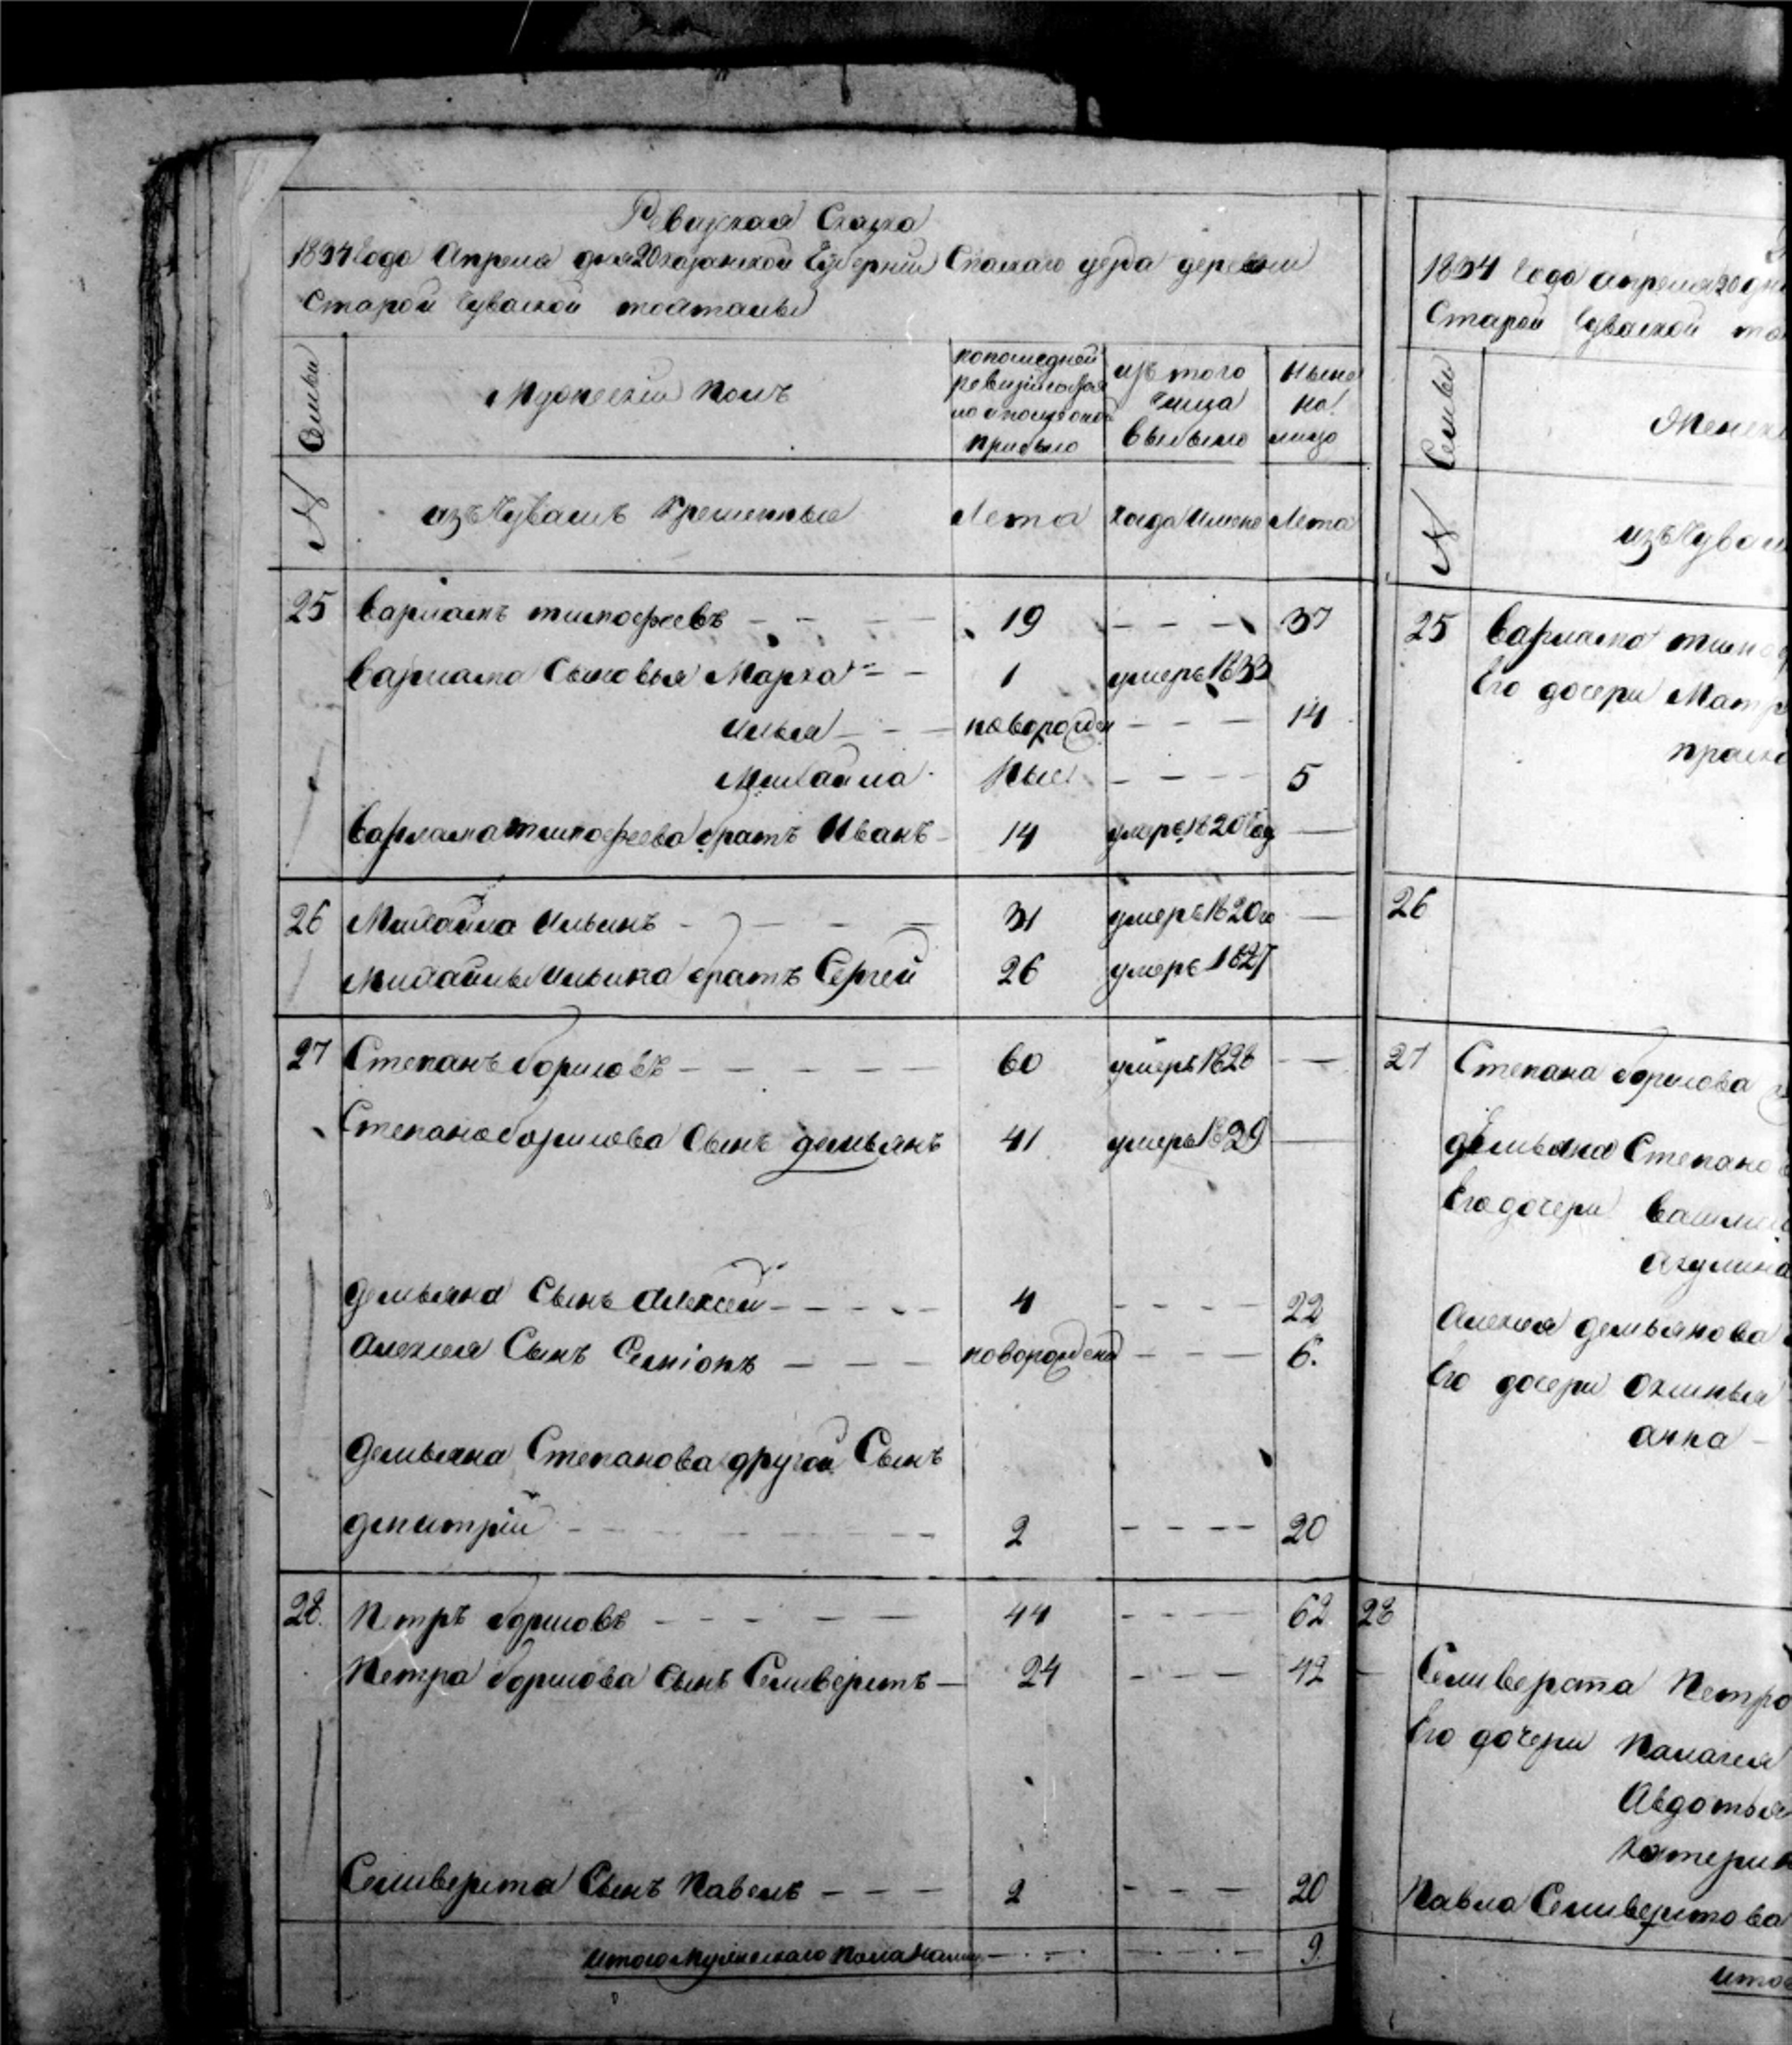 Ревизская Сказка
1834 Года Апреля дня 20 казанской Губернии Спаскаго уезда деревни
Старой Чуваской
Семьи
Мужеский полъ
по последней
ревизии состоя
ло и после оной
прибыло
изъ того
числа
выбыло
ныне
на
лицо
№
изъ Чувашъ Крещенные
Лета
Когда имено
Лета
25 Варламъ тимофеевъ - - - - 19 - - - 37
Варлама Сыновья Марка - - 1 умеръ 1833
Илья - - - новорожден - - - 14
Михайла ные - - - - 5
Варлама тимофеева братъ Иванъ - 14 умеръ 1820 Год —
26 Михайла Ильинъ - - - - - 31 умеръ 1820 го —
Михайлы Ильина братъ Сергей 26 умеръ 1827
27 Степанъ борисовъ - - - - - 60 умеръ 1828 - —
Степана борисова Сынъ демьянъ 41 умеръ 1829 —
демьяна Сынъ Алексей - - - - 4 - - - - 22
Алексея Сынъ Семіонъ - - - новорождена - - - 6.
демьяна Степанова другой Сынъ
дмитрій - - - - - - - - 2 - - - - 20
28. Петръ борисовъ - - - - - 44 - - - 62.
Петра борисова Сынъ Селиверстъ — 24 - - - 42
Селиверста Сынъ Павелъ - - - 2 - - - 20
Итого Мужескаго пола налицо - · - · - · - 9.
1834 Года апреля 20 дня
Старой Чуваской
Семьи
№
25 Варлама
Его дочери
26
27 Степана борисова
демьяна
Его дочери
Алексея демьянова
Его дочери
анна -
28
Селиверста
Его дочери Палагея
Авдотья
Павла Селиверстова